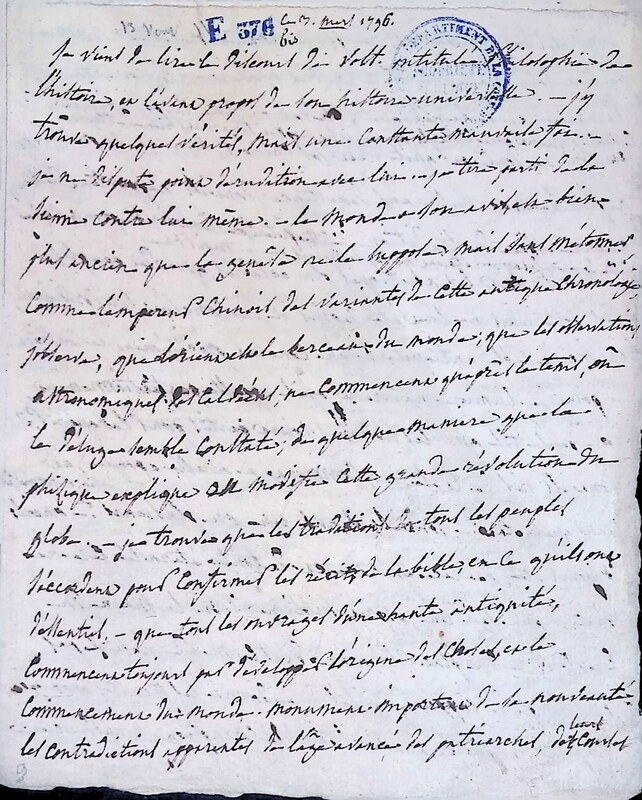 13 Vent
E 376
bis
Le 3. mars 1796.
DÉPARTEMENT DE LA
Je viens de lire le discours de Volt. intitulé Philosophie de
l'histoire, en l'avant propos de son histoire universelle. – j'y
trouve quelques vérités, mais une constante mauvaise foi. –
je ne dispute point d'érudition avec lui – je tire parti de la
sienne contre lui même. – le monde a son avis est bien
plus ancien que la genèse ne le suppose mais sans m'étonner
comme l'empereur Chinois des variantes de cette antique Chronologie
j'observe, que l'orient est le berceau du monde, que les observations
astronomiques des Caldéens, ne commencent qu'après le tems, où
le déluge semble constaté, de quelque maniere que la
phisique explique ou modifie cette grande révolution du
globe. – je trouve que les traditions de tous les peuples
s'accordent pour confirmer les récits de la bible, en ce qu'ils ont
d'essentiel. – que tous les ouvrages d'une haute antiquité,
commencent toujours par développer l'origine des choses, et le
commencement du monde. monument important de sa nouveauté.
les contradictions apparentes de l'âge avancé des patriarches, de leurs courses
9